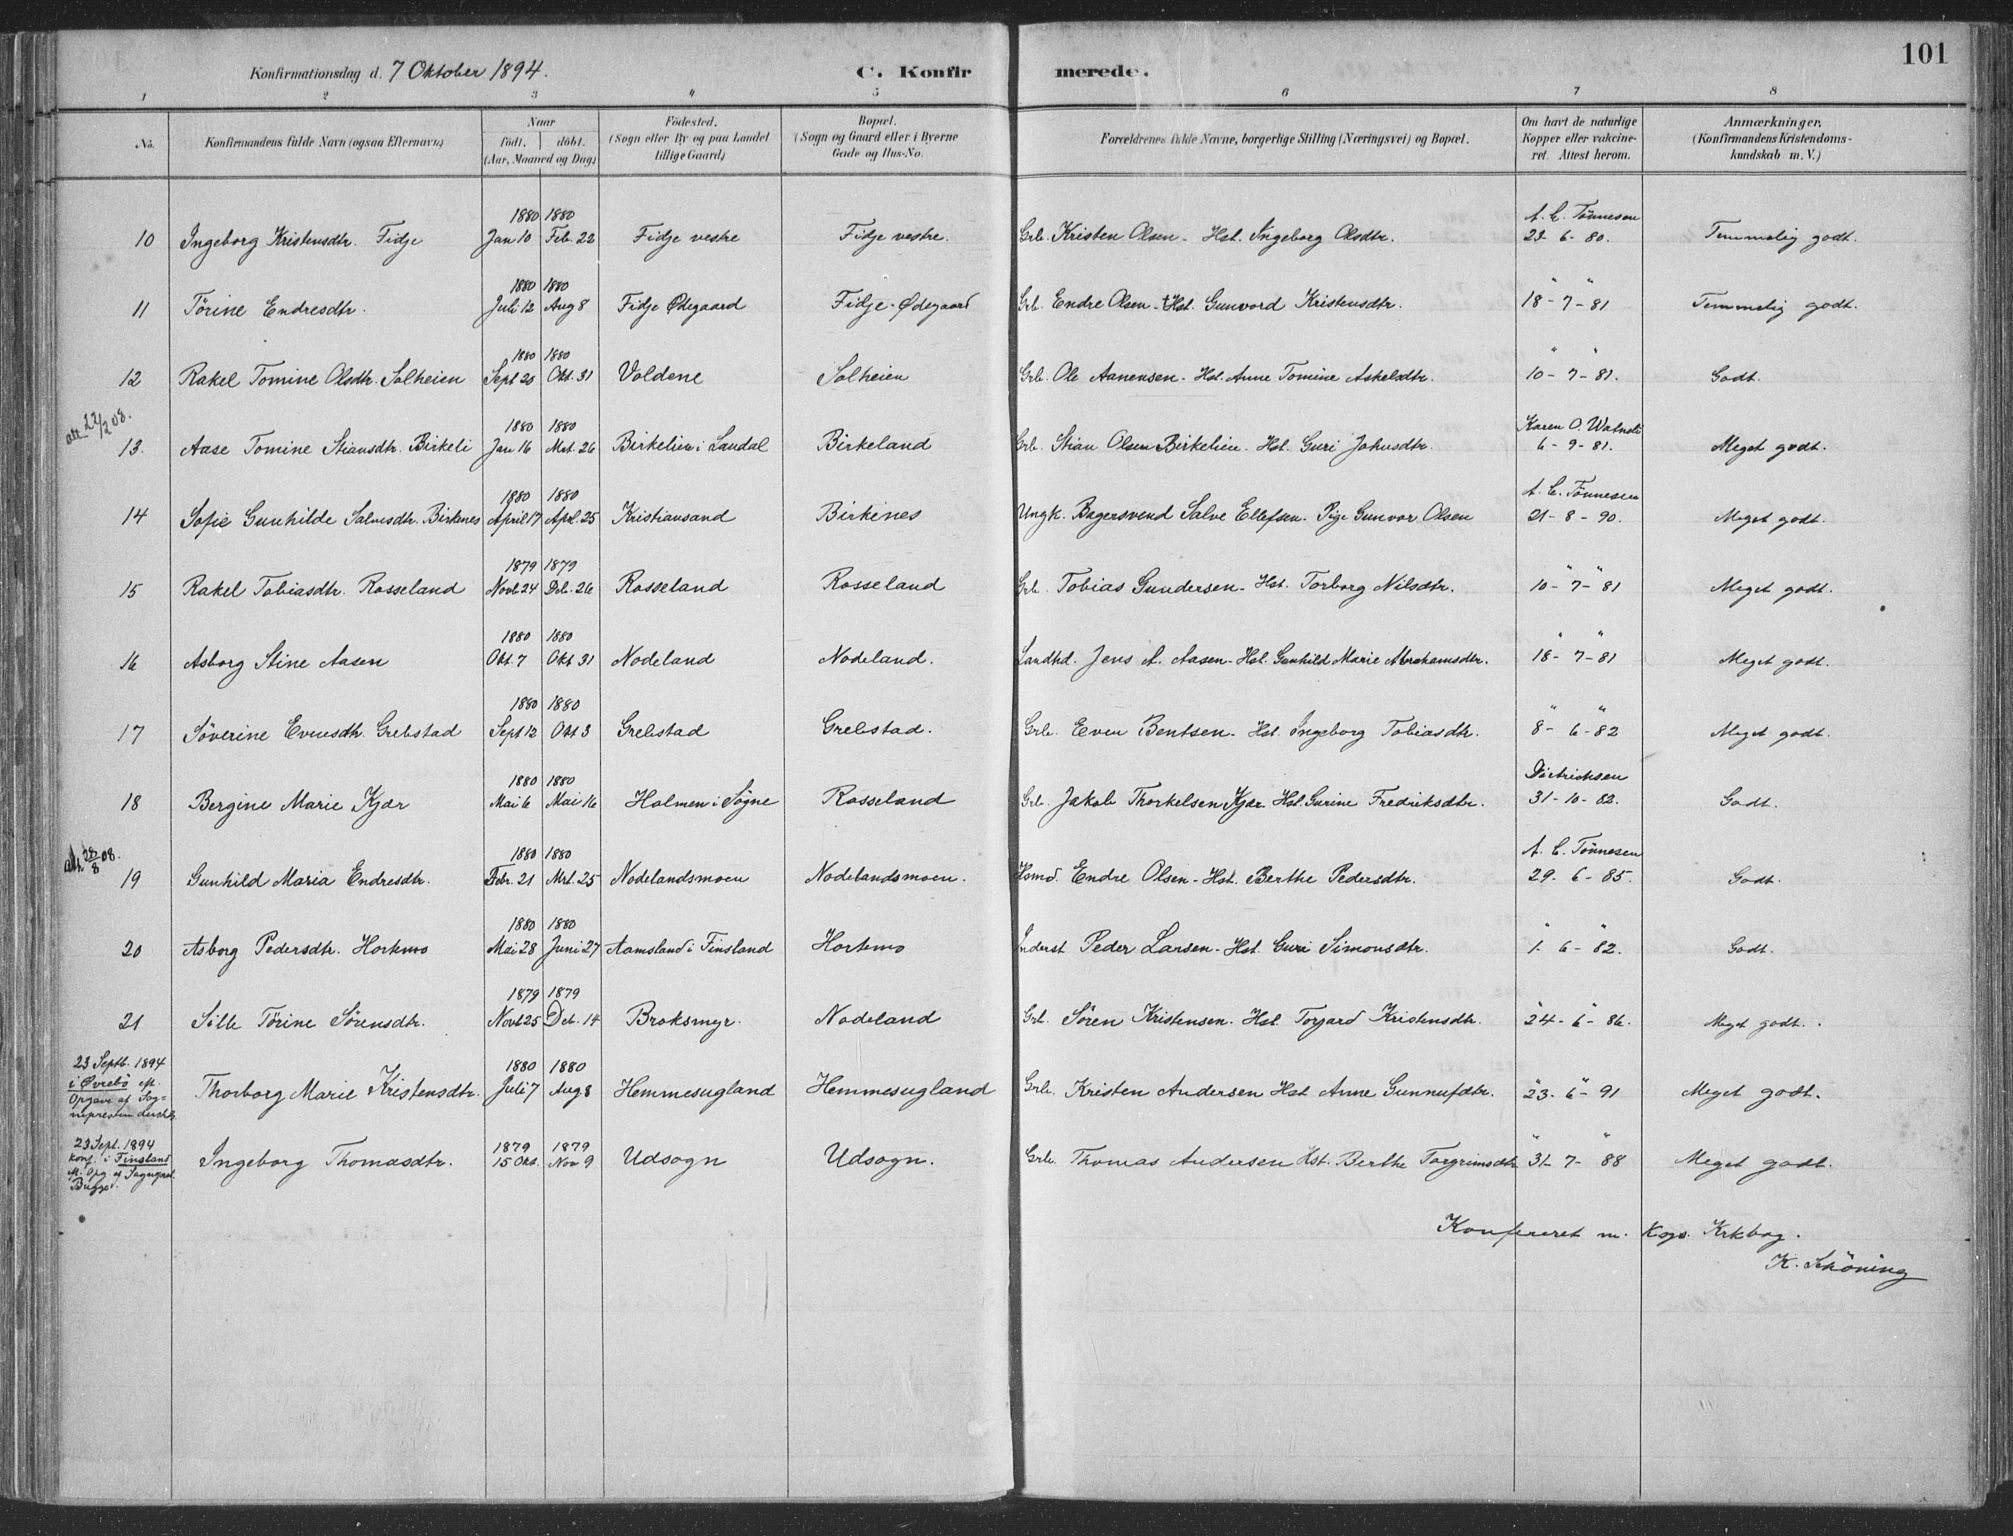 Konfirmationsdag d. 7 Oktober 1894.
C. Konfirmerede.
101
1 2 3 4 5 6 7 8
No.
Konfirmandens fulde Navn (ogsaa Efternavn)
Naar
født. døbt.
(Aar, Maaned og Dag)
Fødested.
(Sogn eller By og paa Landet
tillige Gaard)
Bopæl.
(Sogn og Gaard eller i Byerne
Gade og Hus-No.
Forældrenes fulde Navne, borgerlige Stilling (Næringsvei) og Bopæl.
Om havt de naturlige
Kopper eller vakcine-
ret. Attest herom.
Anmærkninger,
(Konfirmandens Kristendoms-
kundskab m. V.)
1880 1880 A. C. Tönnesen
10 Ingeborg Kristensdtr. Fidje Jan 10 Feb. 22 Fidje vestre Fidje vestre. Grb. Kristen Olsen - Hst. Ingeborg Olsdtr. 23-6-80. Temmelig godt.
1880 1880 " "
11 Törine Endresdtr. Juli 12 Aug 8 Fidje Ødegaard Fidje-Ødegaard Grb. Endre Olsen - +Hst. Gunvord Kristensdtr. 18-7-81 Temmelig godt.
1880 1880 " "
12 Rakel Tomine Olsdtr. Solheien Sept 20 Okt. 31 Voldene Solheien Grb. Ole Aanensen - Hst. Anne Tomine Askelsdtr. 10-7-81. Godt.
att. 22/2 08.
1880 1880 Karen O. Watneli
13. Aase Tomine Stiansdtr. Birkeli Jan 16 Mrt. 26 Birkelien i Laudal Birkeland Grb. Stian Olsen Birkelien. Hst. Guri Johnsdtr. 6-9-81. Meget godt.
1880 1880 A. C. Tönnesen
14 Sofie Gunhilde Salvesdtr. Birkenes April 17 Apl. 25 Kristiansand Birkenes Ungk. Bagersvend Salve Ellefsen. Pige Gunvor Olsen 21-8-90. Meget godt.
1879 1879 " "
15 Rakel Tobiasdtr. Rosseland Novb 24 Deb. 26 Rosseland Rosseland Grb. Tobias Gundersen - Hst. Torborg Nilsdtr. 10-7-81 Meget godt.
1880 1880 " "
16 Asborg Stine Aasen Okt. 7 Okt 31 Nodeland Nodeland. Landhd. Jens A. Aasen - Hst. Gunhild Marie Abrahamsdtr. 18-7-81 Meget godt.
1880 1880 " "
17 Söverine Evensdtr. Grebstad Sept 12 Okt 3 Grebstad Grebstad. Grb. Even Bentsen - Hst. Ingeborg Tobiasdtr. 8-6-82 Meget godt.
1880 1880 Dietrichsen
18 Bergine Marie Kjær Mai 6 Mai 16 Holmen i Søgne Rosseland Grb. Jakob Thorkelsen Kjær. Hst. Gurine Fredriksdtr. 31-10-82. Godt.
att. 28/8 08.
1880 1880 A. C. Tönnesen
19 Gunhild Maria Endresdtr. Febr. 21 Mrt. 25 Nodelandsmoen Nodelandsmoen. Hsmd. Endre Olsen - Hst. Berthe Pedersdtr. 29-6-85. Godt.
1880 1880 " "
20 Asborg Pedersdtr. Hortemo Mai 28 Juni 27 Aamsland i Finsland Hortemo Inderst Peder Larsen - Hst. Guri Simonsdtr. 1-6-82. Godt.
1879 1879 " "
21 Sille Törine Sörensdtr. Novb 25 Deb. 14 Broksmyr. Nodeland Grb. Sören Kristensen. Hst. Torjard Kristensdtr. 24-6-86. Meget godt.
23 Septb. 1894 1880 1880 " "
i Øvrebö eft. Thorborg Marie Kristensdtr. Juli 7 Aug 8 Hemmesugland Hemmesugland Grb. Kristen Andersen Hst Anne Gunnufsdtr. 23-6-91 Meget godt.
Opgave af Sog-
nepresten dersteds
23 Sept. 1894 1879 1879 " "
konf. i Finsland Ingeborg Thomasdtr. 15 Okt. Nov 9 Udsogn Udsogn. Grb. Thomas Andersen Hst. Berthe Torgrimsdtr 31-7-88 Meget godt.
eft. Opg af Sognepr.
Bugge.
Konfereret m. Kspr. Krkbog.
K. Schöning